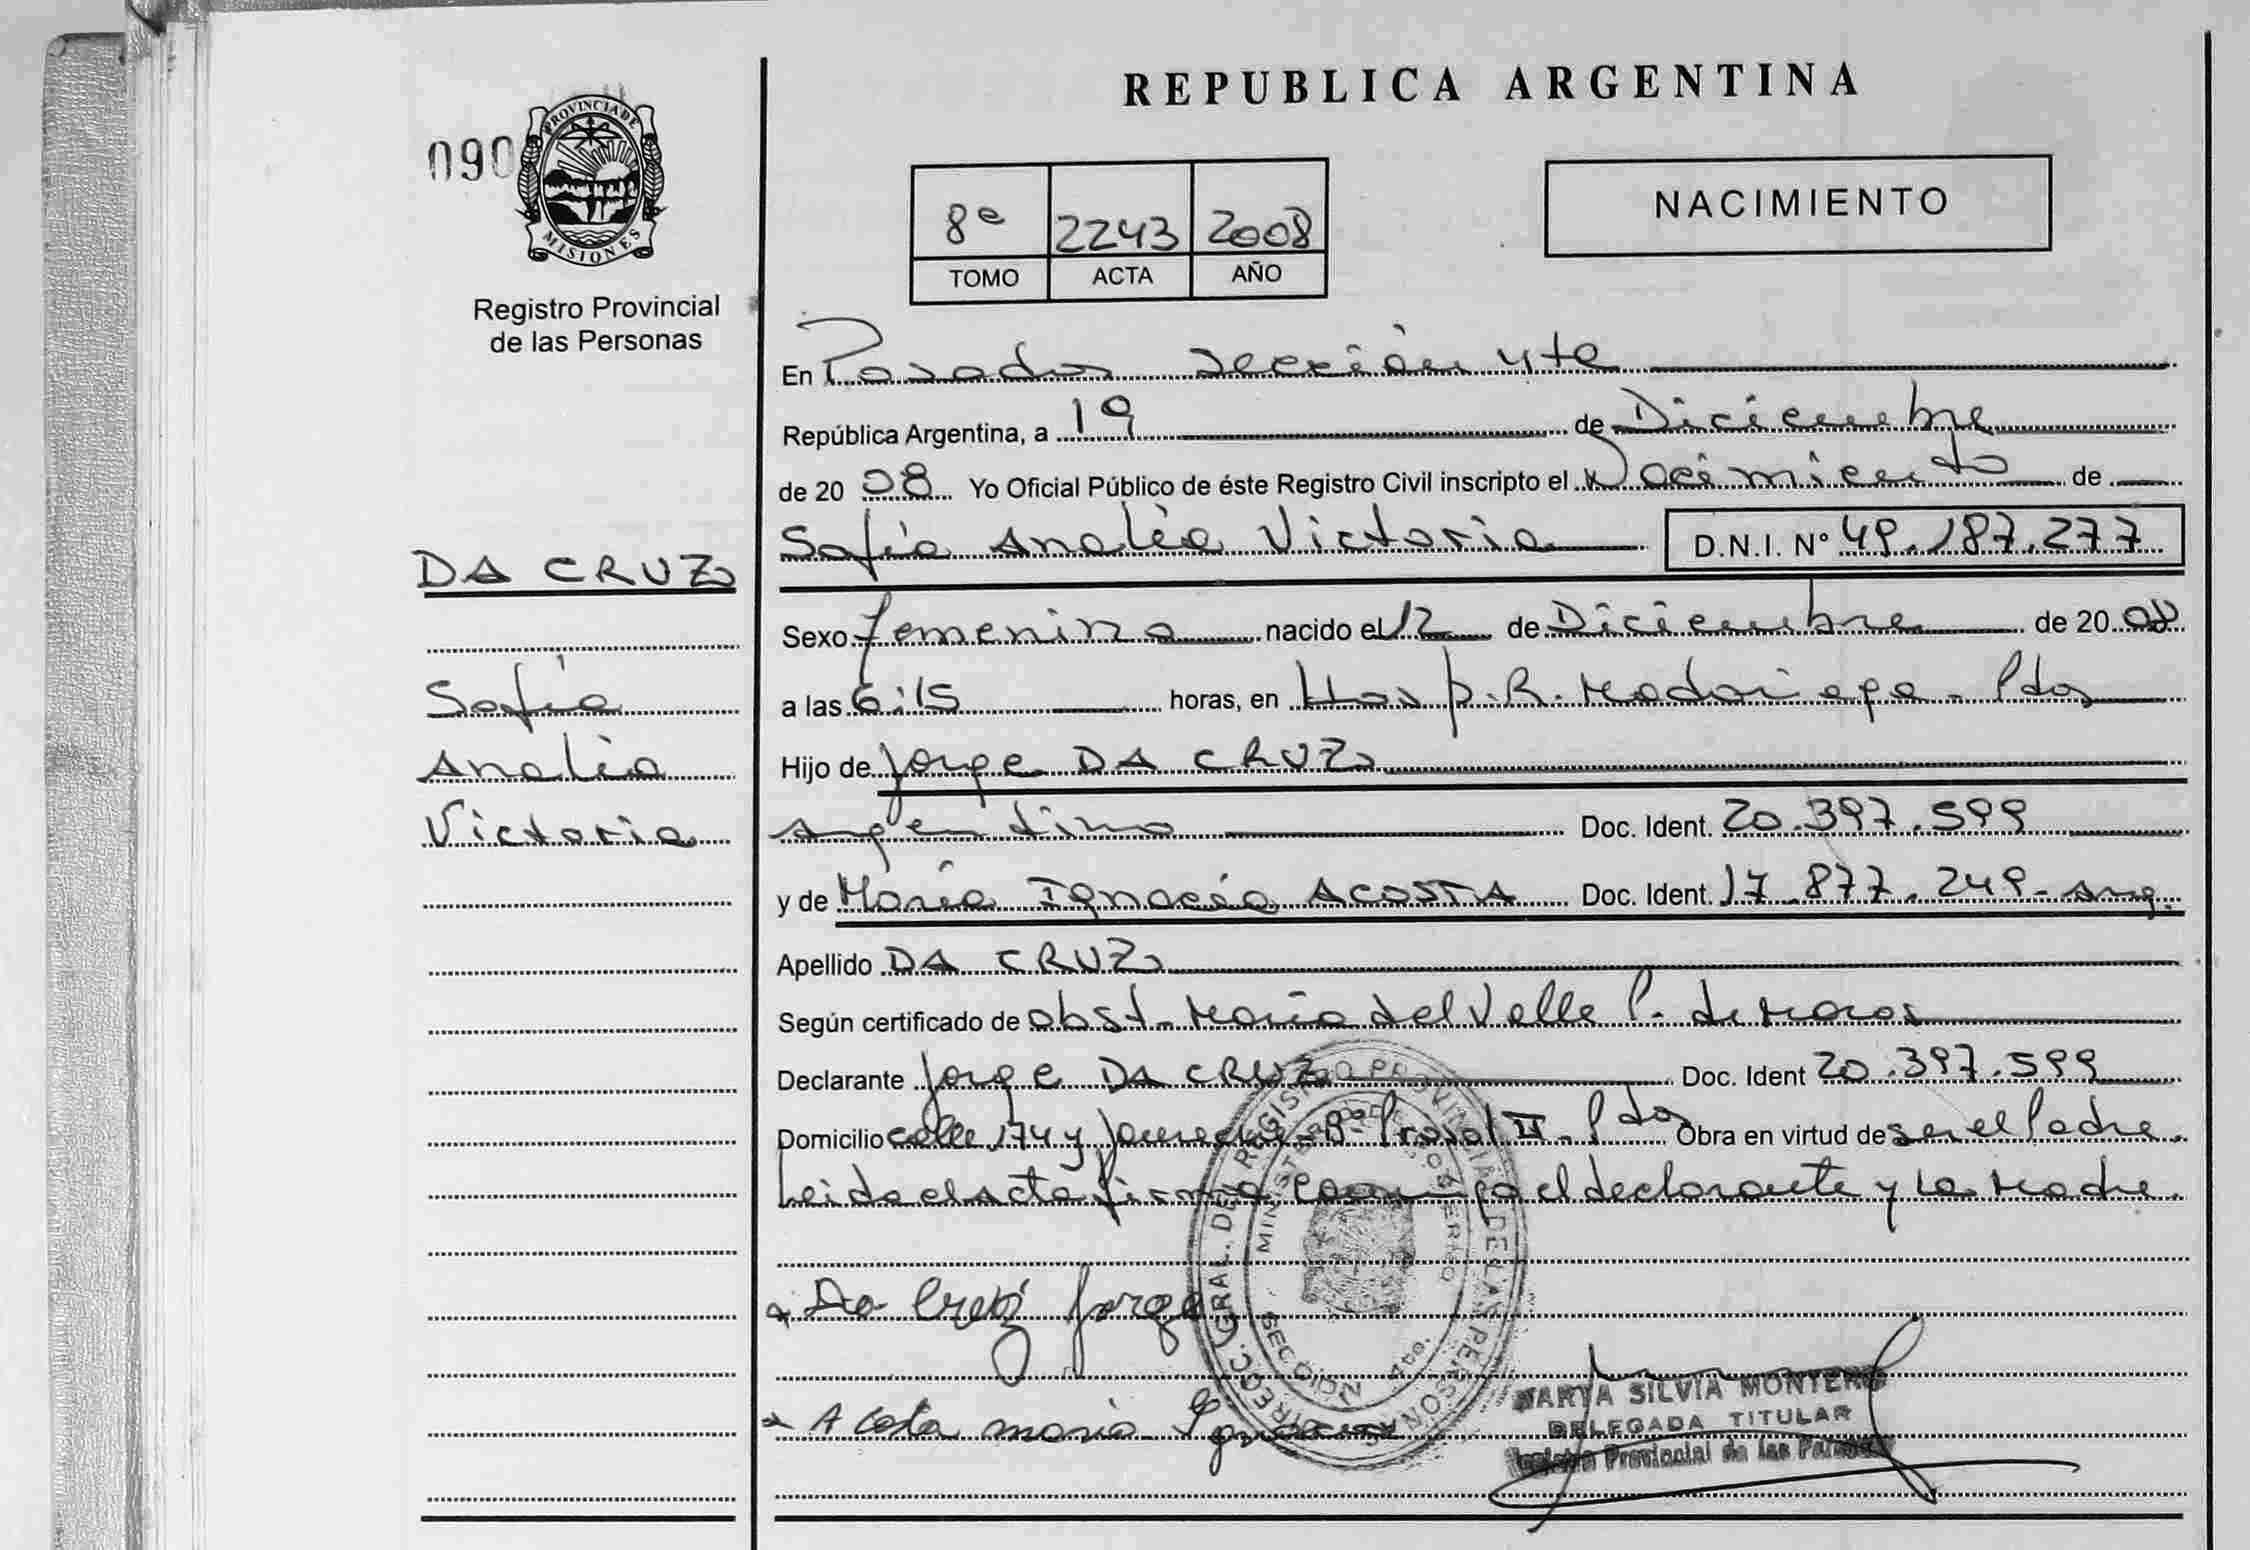 REPUBLICA ARGENTINA
090
PROVINCIA DE
MISIONES
Registro Provincial
de las Personas
8º 2243 2008
TOMO ACTA AÑO
NACIMIENTO
En Posadas sección 4ta
República Argentina, a 19 de Diciembre
de 20 08 Yo Oficial Público de éste Registro Civil inscripto el Nacimiento de
Sofía Analía Victoria D.N.I. Nº 49.187.277
DA CRUZ
Sofía
Analía
Victoria
Sexo femenino nacido el 12 de Diciembre de 20 08
a las 6:15 horas, en Hosp. R. Madariaga - Pdas
Hijo de Jorge DA CRUZ
argentino Doc. Ident. 20.397.599
y de María Ignacia ACOSTA Doc. Ident. 17.877.249 - arg.
Apellido DA CRUZ
Según certificado de obst. María del Valle P. de
Declarante Jorge DA CRUZ Doc. Ident 20.397.599
Domicilio calle 174 y Bº II - Pdas Obra en virtud de ser el Padre.
Leida el acta firma conmigo el declarante y la Madre.
Da Cruz Jorge
Acosta maria Ignacia
DIRECC. GRAL. DEL REGISTRO PROVINCIAL DE LAS PERSONAS
MINISTERIO DE GOBIERNO
SECCION 4to.
MARTA SILVIA MONTERO
DELEGADA TITULAR
Registro Provincial de las Personas